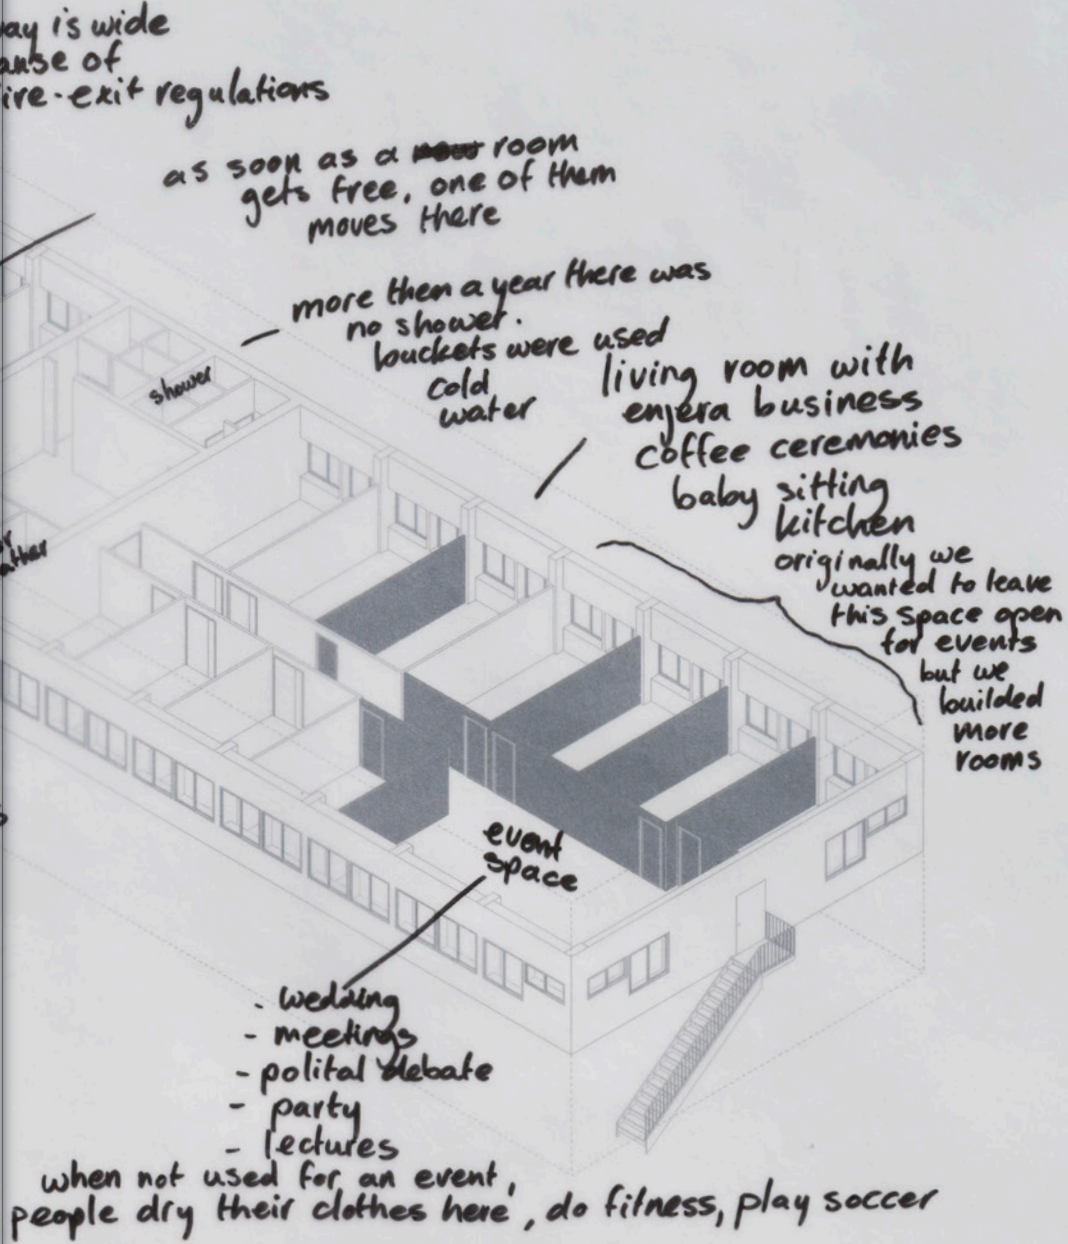 is wide
of
exit regulations
as soon as a room
gets free, one of them
moves there
more then a year there was
no shower.
buckets were used
cold
water
shower
living room with
enjera business
coffee ceremonies
baby sitting
kitchen
originally we
wanted to leave
this space open
for events
but we
builded
more
rooms
event
space
- wedding
- meetings
- polital debate
- party
- lectures
when not used for an event,
people dry their clothes here, do fitness, play soccer